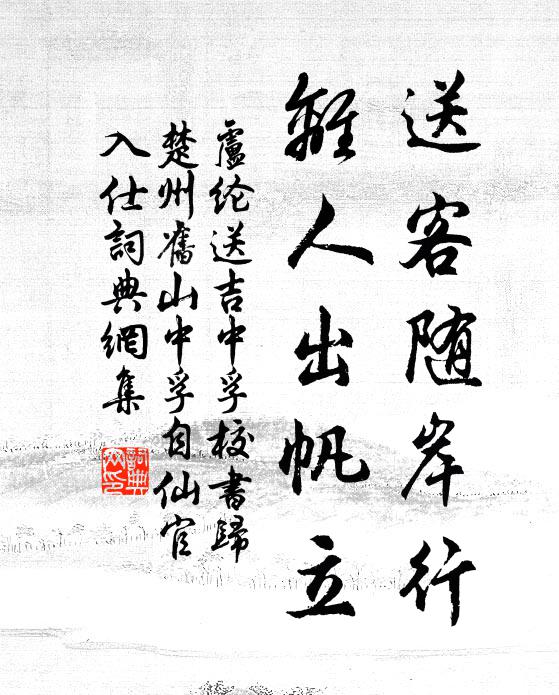 送客随岸行
離人出帆立
盧纶送吉中孚校書歸
楚州舊山中孚自仙官
入仕詞典網集